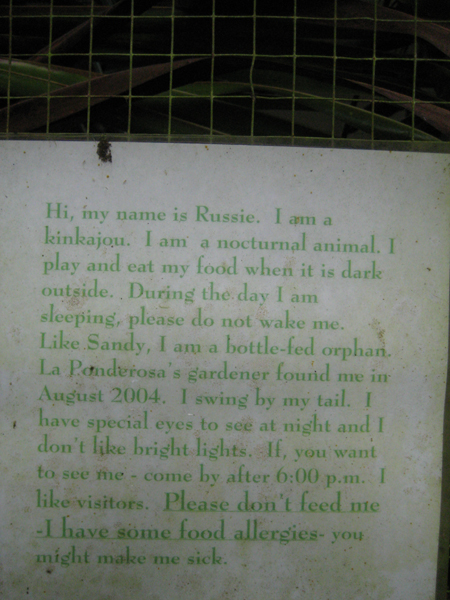 Hi, my name is Russie.  I am a
kinkajou.  I am a nocturnal animal. I
play and eat my food when it is dark
outside.  During the day I am
sleeping, please do not wake me.
Like Sandy, I am a bottle-fed orphan.
La Ponderosa's gardener found me in
August 2004.  I swing by my tail.  I
have special eyes to see at night and I
don't like bright lights.  If, you want
to see me - come by after 6:00 p.m.  I
like visitors.  Please don't feed me
-I have some food allergies- you
might make me sick.